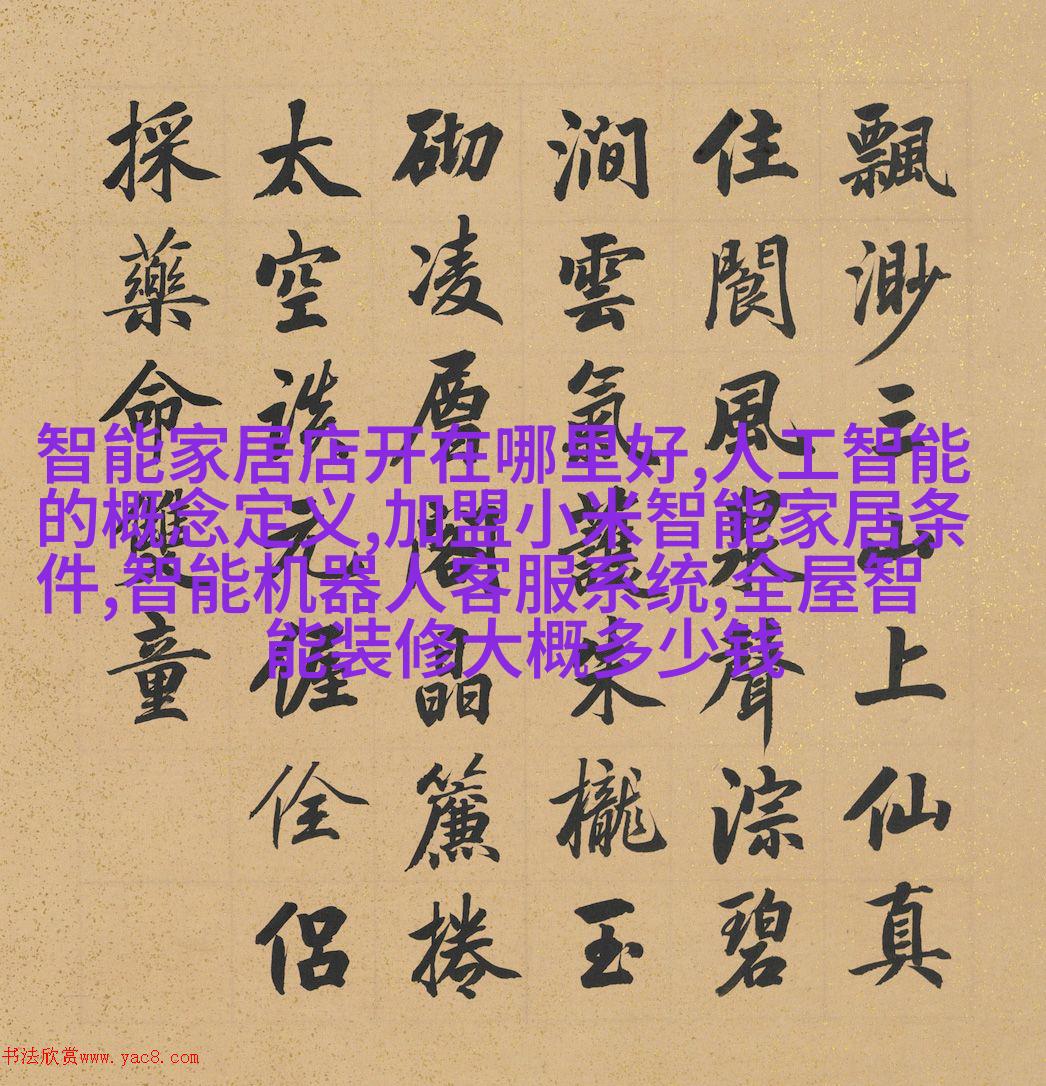 飄渺三山上仙真
住閬風泉聲淙碧
澗雲氣護朱櫳玉
砌凌層閣晶簾捲
太空元偓佺侶
採藥命雙童
智能家居店开在哪里好,人工智能
的概念定义,加盟小米智能家居条
件,智能机器人客服系统,全屋智
能装修大概多少钱
书法欣赏www.yac8.com